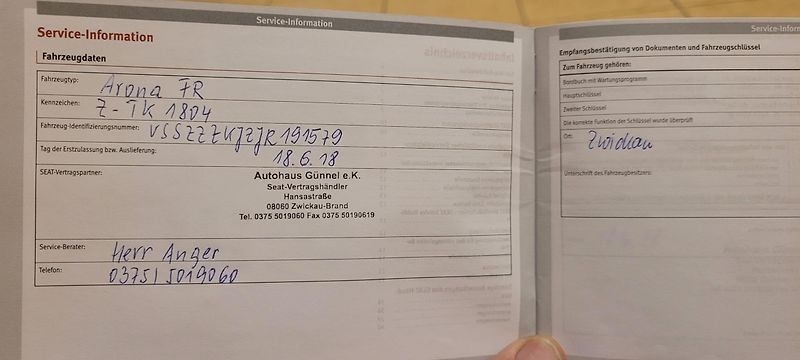 Service-Information
Service-Information
Fahrzeugdaten
Fahrzeugtyp: Arona FR
Kennzeichen: Z-TK 1804
Fahrzeug-Identifizierungsnummer: VSSZZZKJZJR191579
Tag der Erstzulassung bzw. Auslieferung: 18.6.18
SEAT-Vertragspartner:
Autohaus Günnel e.K.
Seat-Vertragshändler
Hansastraße
08060 Zwickau-Brand
Tel. 0375 5019060 Fax 0375 50190619
Service-Berater: Herr Anger
Telefon: 0375/5019060
Empfangsbestätigung von Dokumenten und Fahrzeugschlüssel
Zum Fahrzeug gehören:
Bordbuch mit Wartungsprogramm
Hauptschlüssel
Zweiter Schlüssel
Die korrekte Funktion der Schlüssel wurde überprüft
Ort: Zwickau
Unterschrift des Fahrzeugbesitzers: